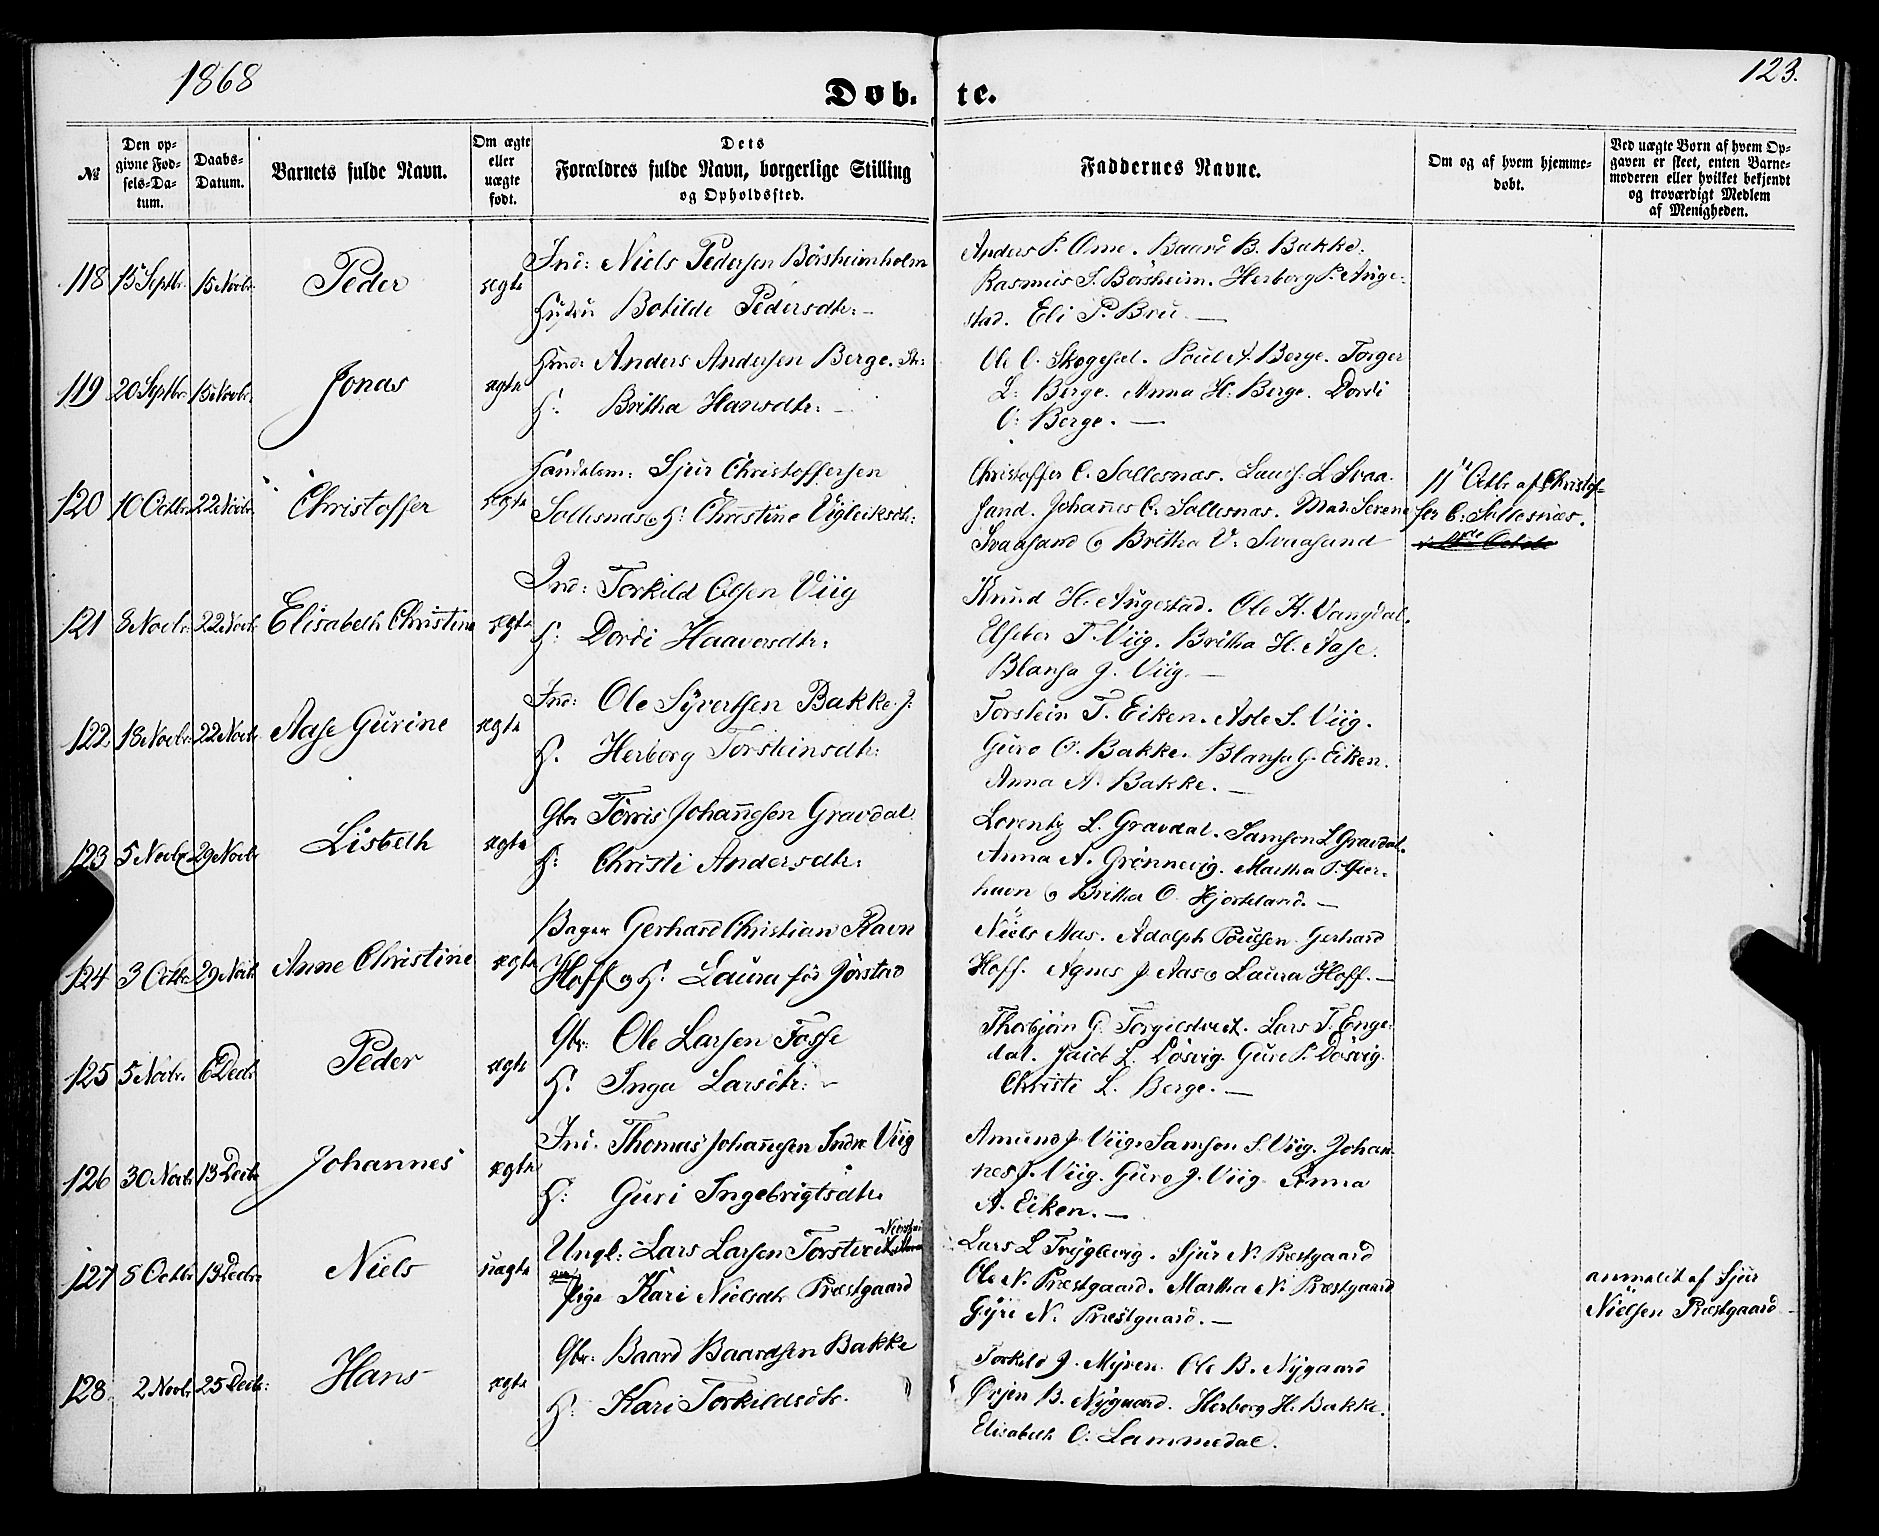 1868
123.
Døb-te.
No
Den opgivne Fødsels-Datum.
Daabs-Datum.
Barnets fulde Navn.
Om ægte eller uægte født.
Dets Forældres fulde Navn, borgerlige Stilling og Opholdssted.
Faddernes Navne.
Om og af hvem hjemmedøbt.
Ved uægte Børn af hvem Opgaven er skeet, enten Barnemoderen eller hvilket bekjendt og troværdigt Medlem af Menigheden.
118 15 Septbr. 15 Novbr. Peder ægte
Ind: Niels Pedersen Börsheimholm
Hustru Botilde Pedersdtr:
Anders P. Ome. Baard B. Bakke.
Rasmus T. Börsheim. Herborg P. Auge-
stad. Eli P. Bru.
119 20 Septbr. 15 Novbr. Jonas ægte
Hmd: Anders Andersen Berge. St:
H: Britha Hansdtr:
Ole O. Skogesel. Poul A. Berge. Torger
L: Berge. Anna H: Berge. Dordi
O: Berge.
120 10 Octbr. 22 Novbr. Christoffer ægte
Handelsm: Sjur Christoffersen
Sallesnæs og H: Christine Vigleiksdtr:
Christoffer C. Sallesnæs. L. Svaa-
sand. Johannes C. Sallesnæs. Mad. Serene
Svaasand og Britha V. Svaasand
11te Octbr af Christof-
fer C. Sallesnæs.
121 8 Novbr. 22 Novbr. Elisabeth Christine ægte
Ind: Torkild Olsen Viig
H: Dordi Haaversdtr:
Knud H. Augestad. Ole K. Vangdal.
Elseber T. Viig. Britha H. Aase.
Blansa J. Viig.
122 18 Novbr. 22 Novbr. Aase Gurine ægte
Ind: Ole Syvertsen Bakke J:
H. Herborg Torsteinsdtr:
Torstein T. Eiken. Asle S. Viig.
Guro O. Bakke. Blansa G. Eiken.
Anna A. Bakke.
123 5 Novbr. 29 Novbr Lisbeth ægte
Gbr Törris Johannesen Gravdal
H: Christi Andersdtr:
Lorentz L. Gravdal. Samson L Gravdal.
Anna A. Grønnevig. Martha P.
havn og Britha O. Hjorteland.
124 3 Octbr. 29 Novbr. Anne Christine ægte
Bager Gerhard Christian Ravn
Hoff og H: Laura før Jørstad
Niels Aas. Adolph Poulsen. Gerhard
Hoff. Agnes J. Aas og Laura Hoff.
125 5 Novbr. 6 Decbr Peder ægte
Gbr: Ole Larsen Fosse
H. Inga Larsdtr:
Thorbjörn G. Torgilstveit. Lars T. Enge-
dal. L. Dösvig. Guro P. Dösvig.
Christi L. Berge.
126 30 Novbr. 13 Decbr Johannes ægte
Ind. Thomas Johannesen Indre Viig
H: Guri Ingebrigtsdtr:
Amund J. Viig. Samson S. Viig. Johan-
nes J. Viig. Guro J. Viig. Anna
A. Eiken.
127 8 Octbr 13 Decbr Niels uægte
Ungk: Lars Larsen Torstveit
Pige Kari Nielsdtr Præstgaard
Lars L Tryglevig. Sjur N. Præstgaard
Ole N. Præstgaard. Martha N. Præstgaard
Gyri N. Præstgaard.
anmeldt af Sjur
Nielsen Præstgaard
128 2 Novbr. 25 Decbr: Hans ægte
Gbr: Baard Baardsen Bakke
H: Kari Torkildsdtr.
Torkild J. Myren. Ole B. Nygaard
Örjen B. Nygaard. Herborg H. Bakke.
Elisabeth O: Lammedal.